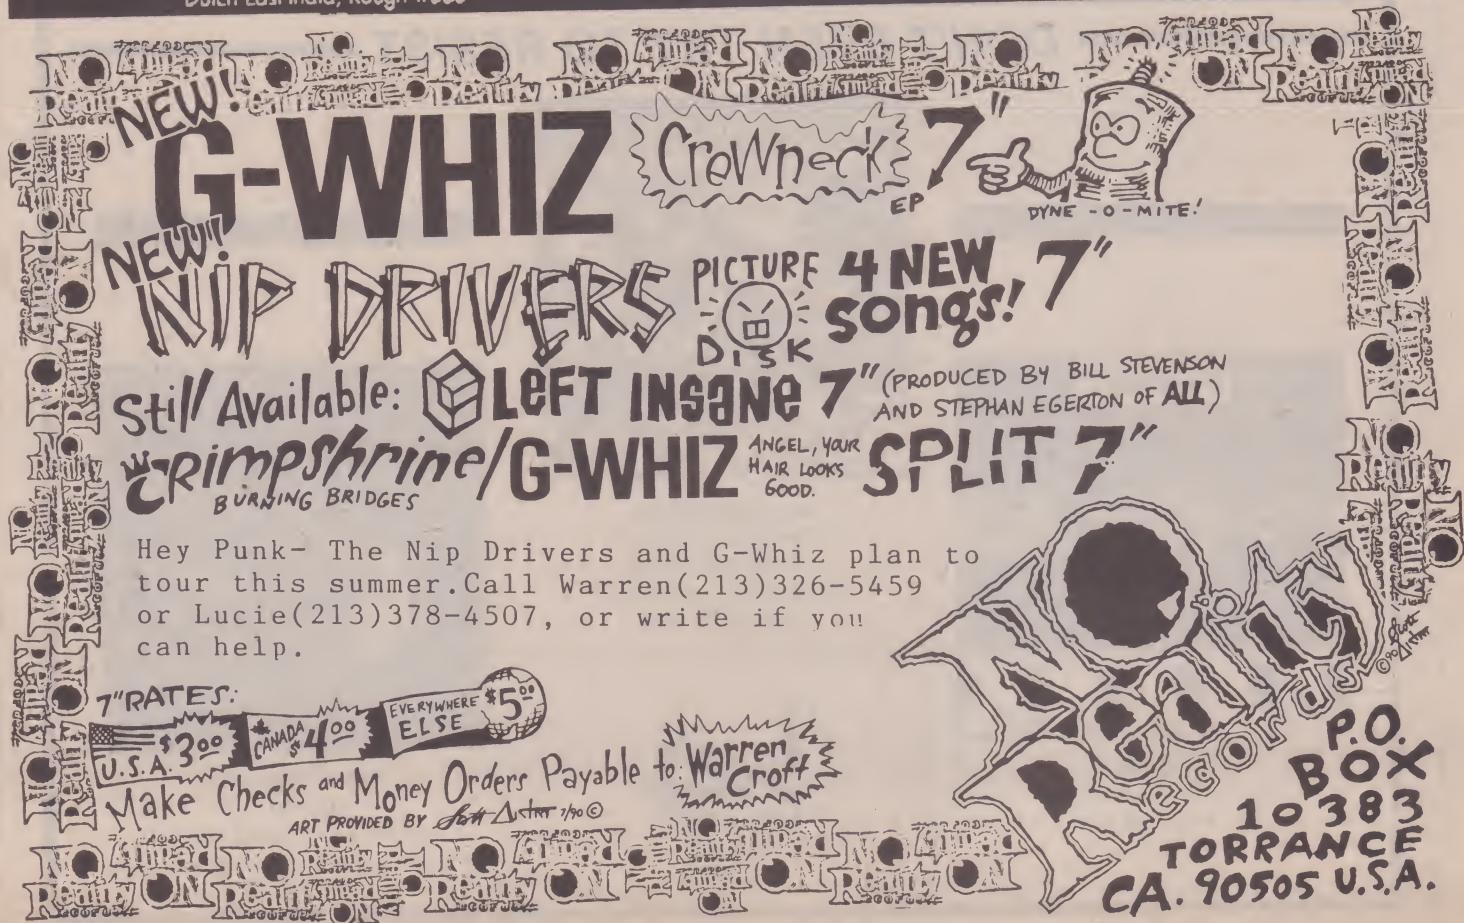 Dutch East India, Rough Trade
NEW!
G-WHIZ Crewneck 7"
EP
DYNE-O-MITE!
NEW!
NIP DRIVERS PICTURE DISK 4 NEW songs! 7"
Still Available: LEFT INSANE 7" (PRODUCED BY BILL STEVENSON
AND STEPHAN EGERTON OF ALL)
CRIMPSHRINE/G-WHIZ ANGEL, YOUR HAIR LOOKS GOOD. SPLIT 7"
BURNING BRIDGES
Hey Punk- The Nip Drivers and G-Whiz plan to
tour this summer.Call Warren(213)326-5459
or Lucie(213)378-4507, or write if you
can help.
7"RATES:
U.S.A. $3.00 CANADA $4.00 EVERYWHERE ELSE $5.00
Make Checks and Money Orders Payable to: Warren Croft
ART PROVIDED BY Scott 7/90 ©
NO Reality Records
©90 Scott
P.O.
BOX
10383
TORRANCE
CA. 90505 U.S.A.